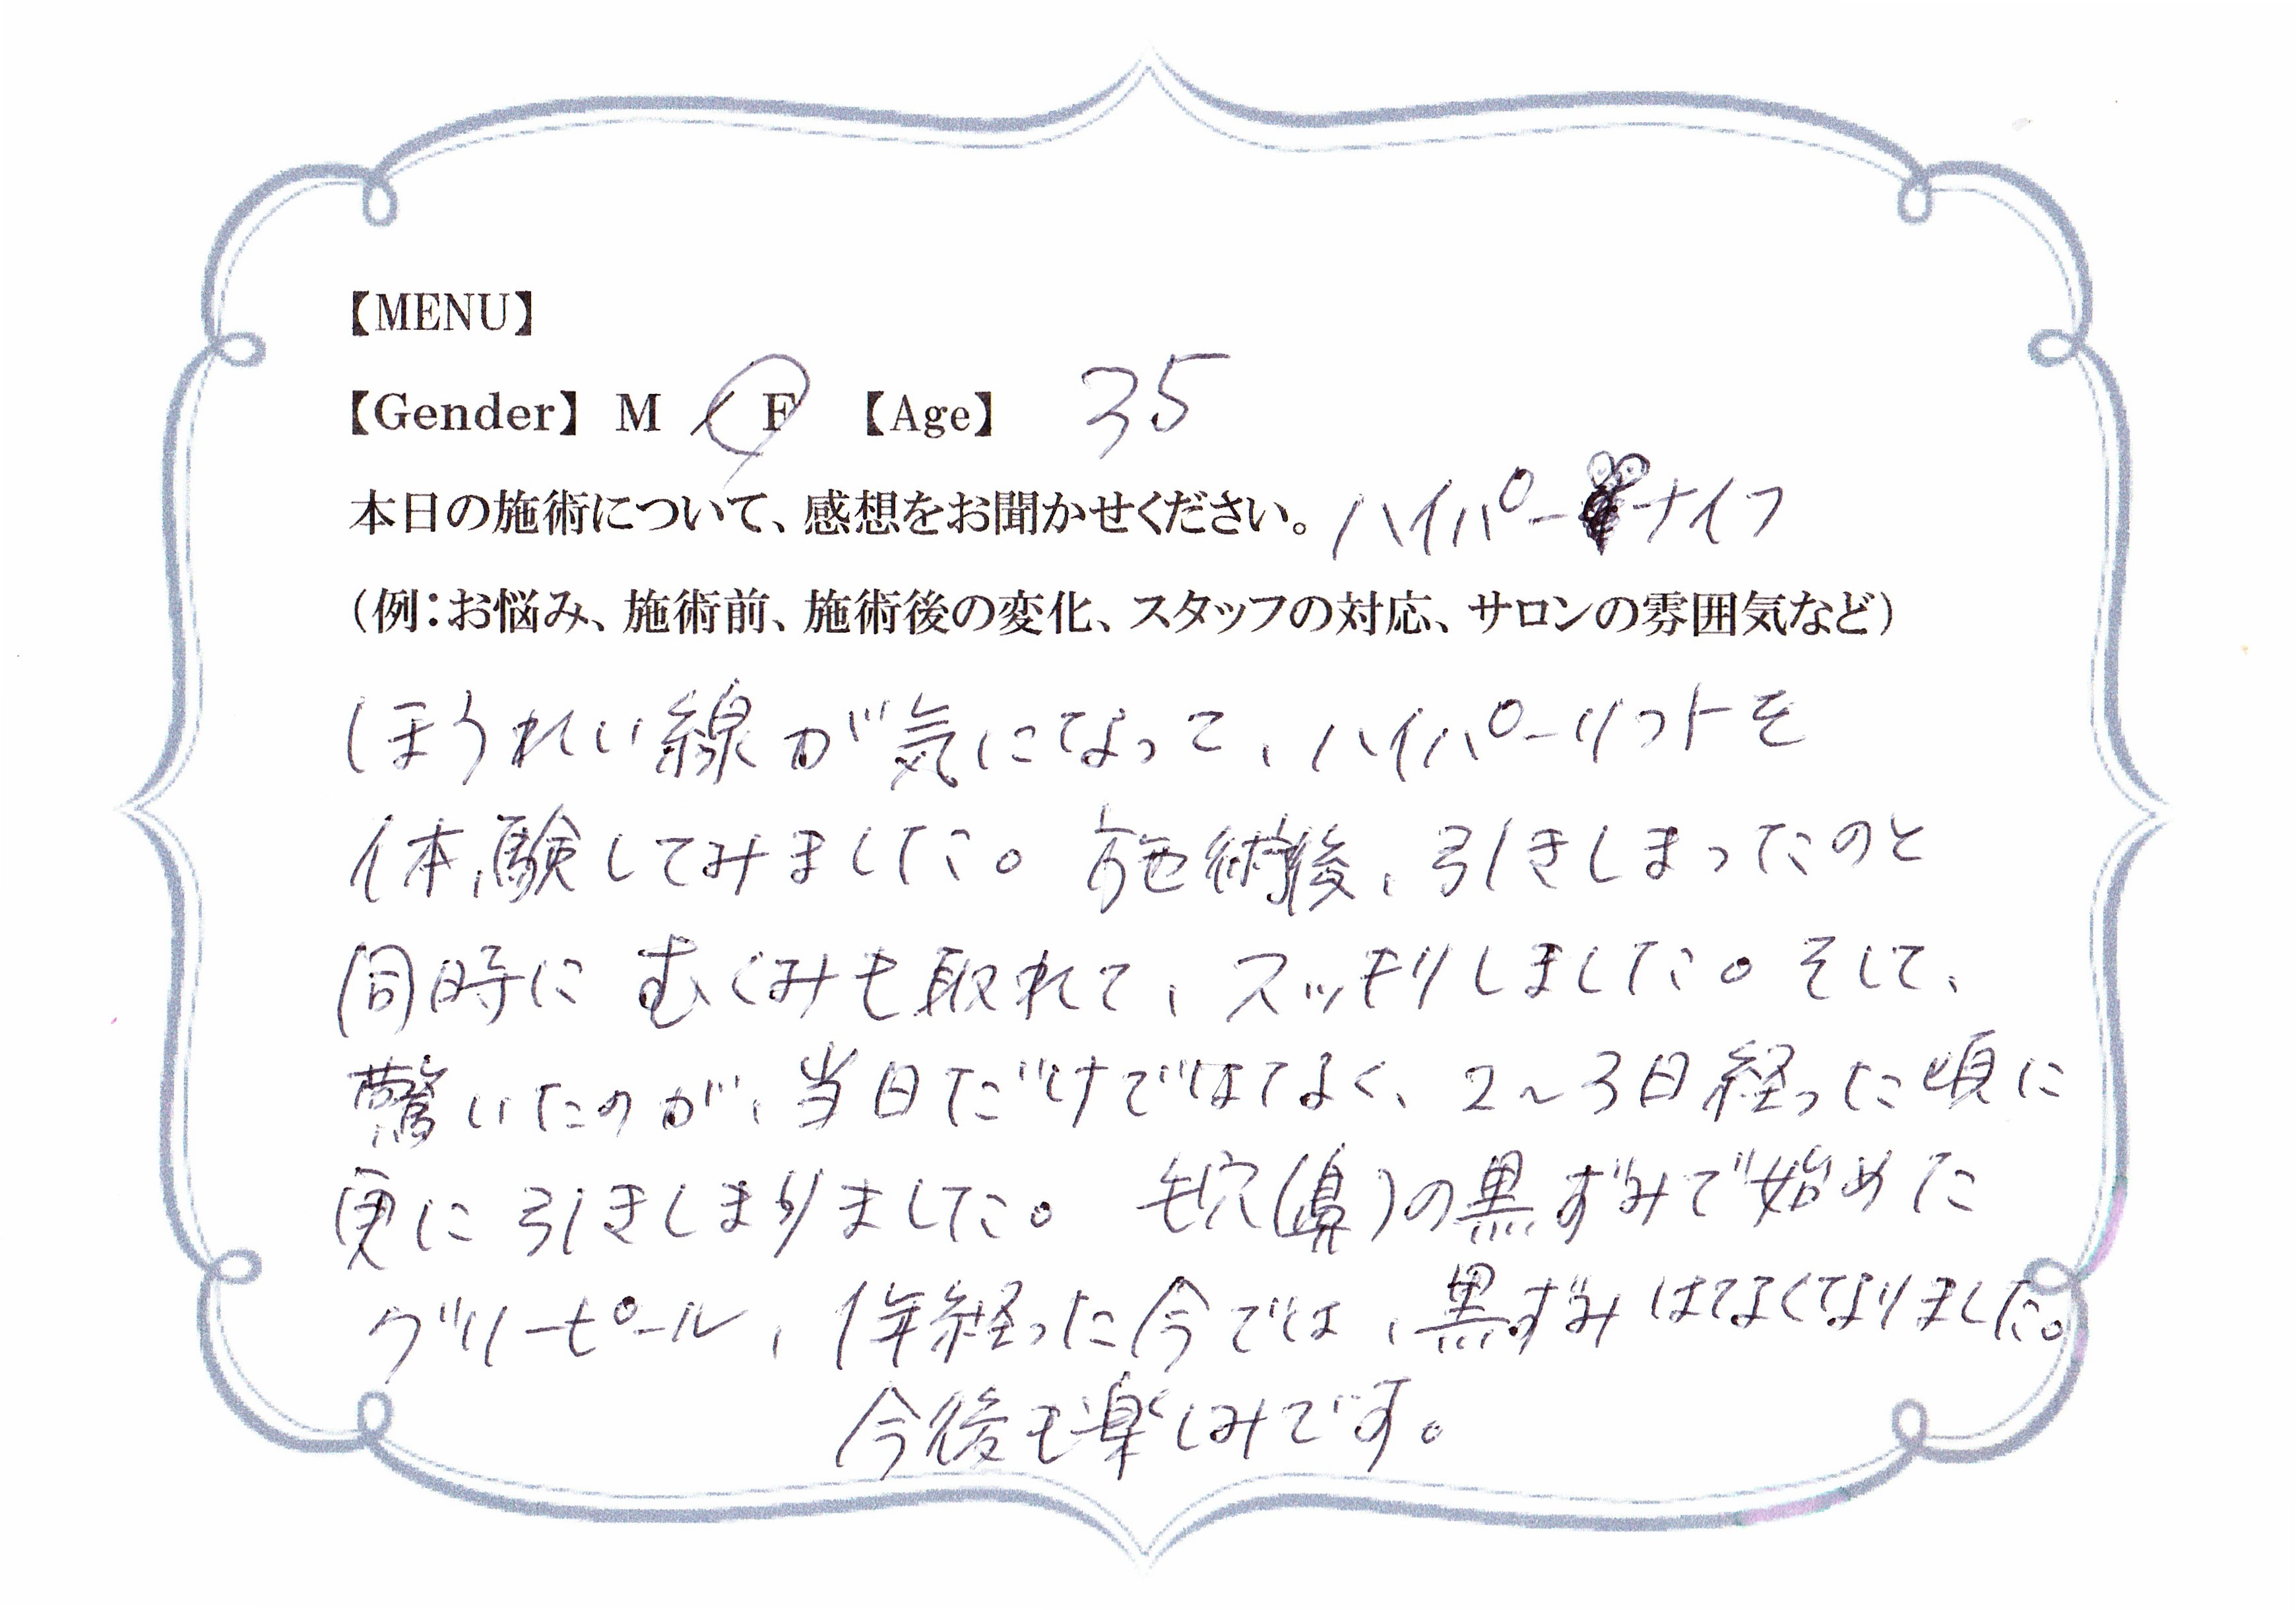 【MENU】
【Gender】 M / F 【Age】 35
本日の施術について、感想をお聞かせください。 ハイパーナイフ
（例：お悩み、施術前、施術後の変化、スタッフの対応、サロンの雰囲気など）
ほうれい線が気になって、ハイパーリフトを
体験してみました。 施術後、引きしまったのと
同時に むくみも取れて、スッキリしました。そして、
驚いたのが、当日だけではなく、2〜3日経った頃に
更に 引きしまりました。 毛穴(鼻)の黒ずみで始めた
グリーピール、1年経った今では、黒ずみはなくなりました。
今後も楽しみです。